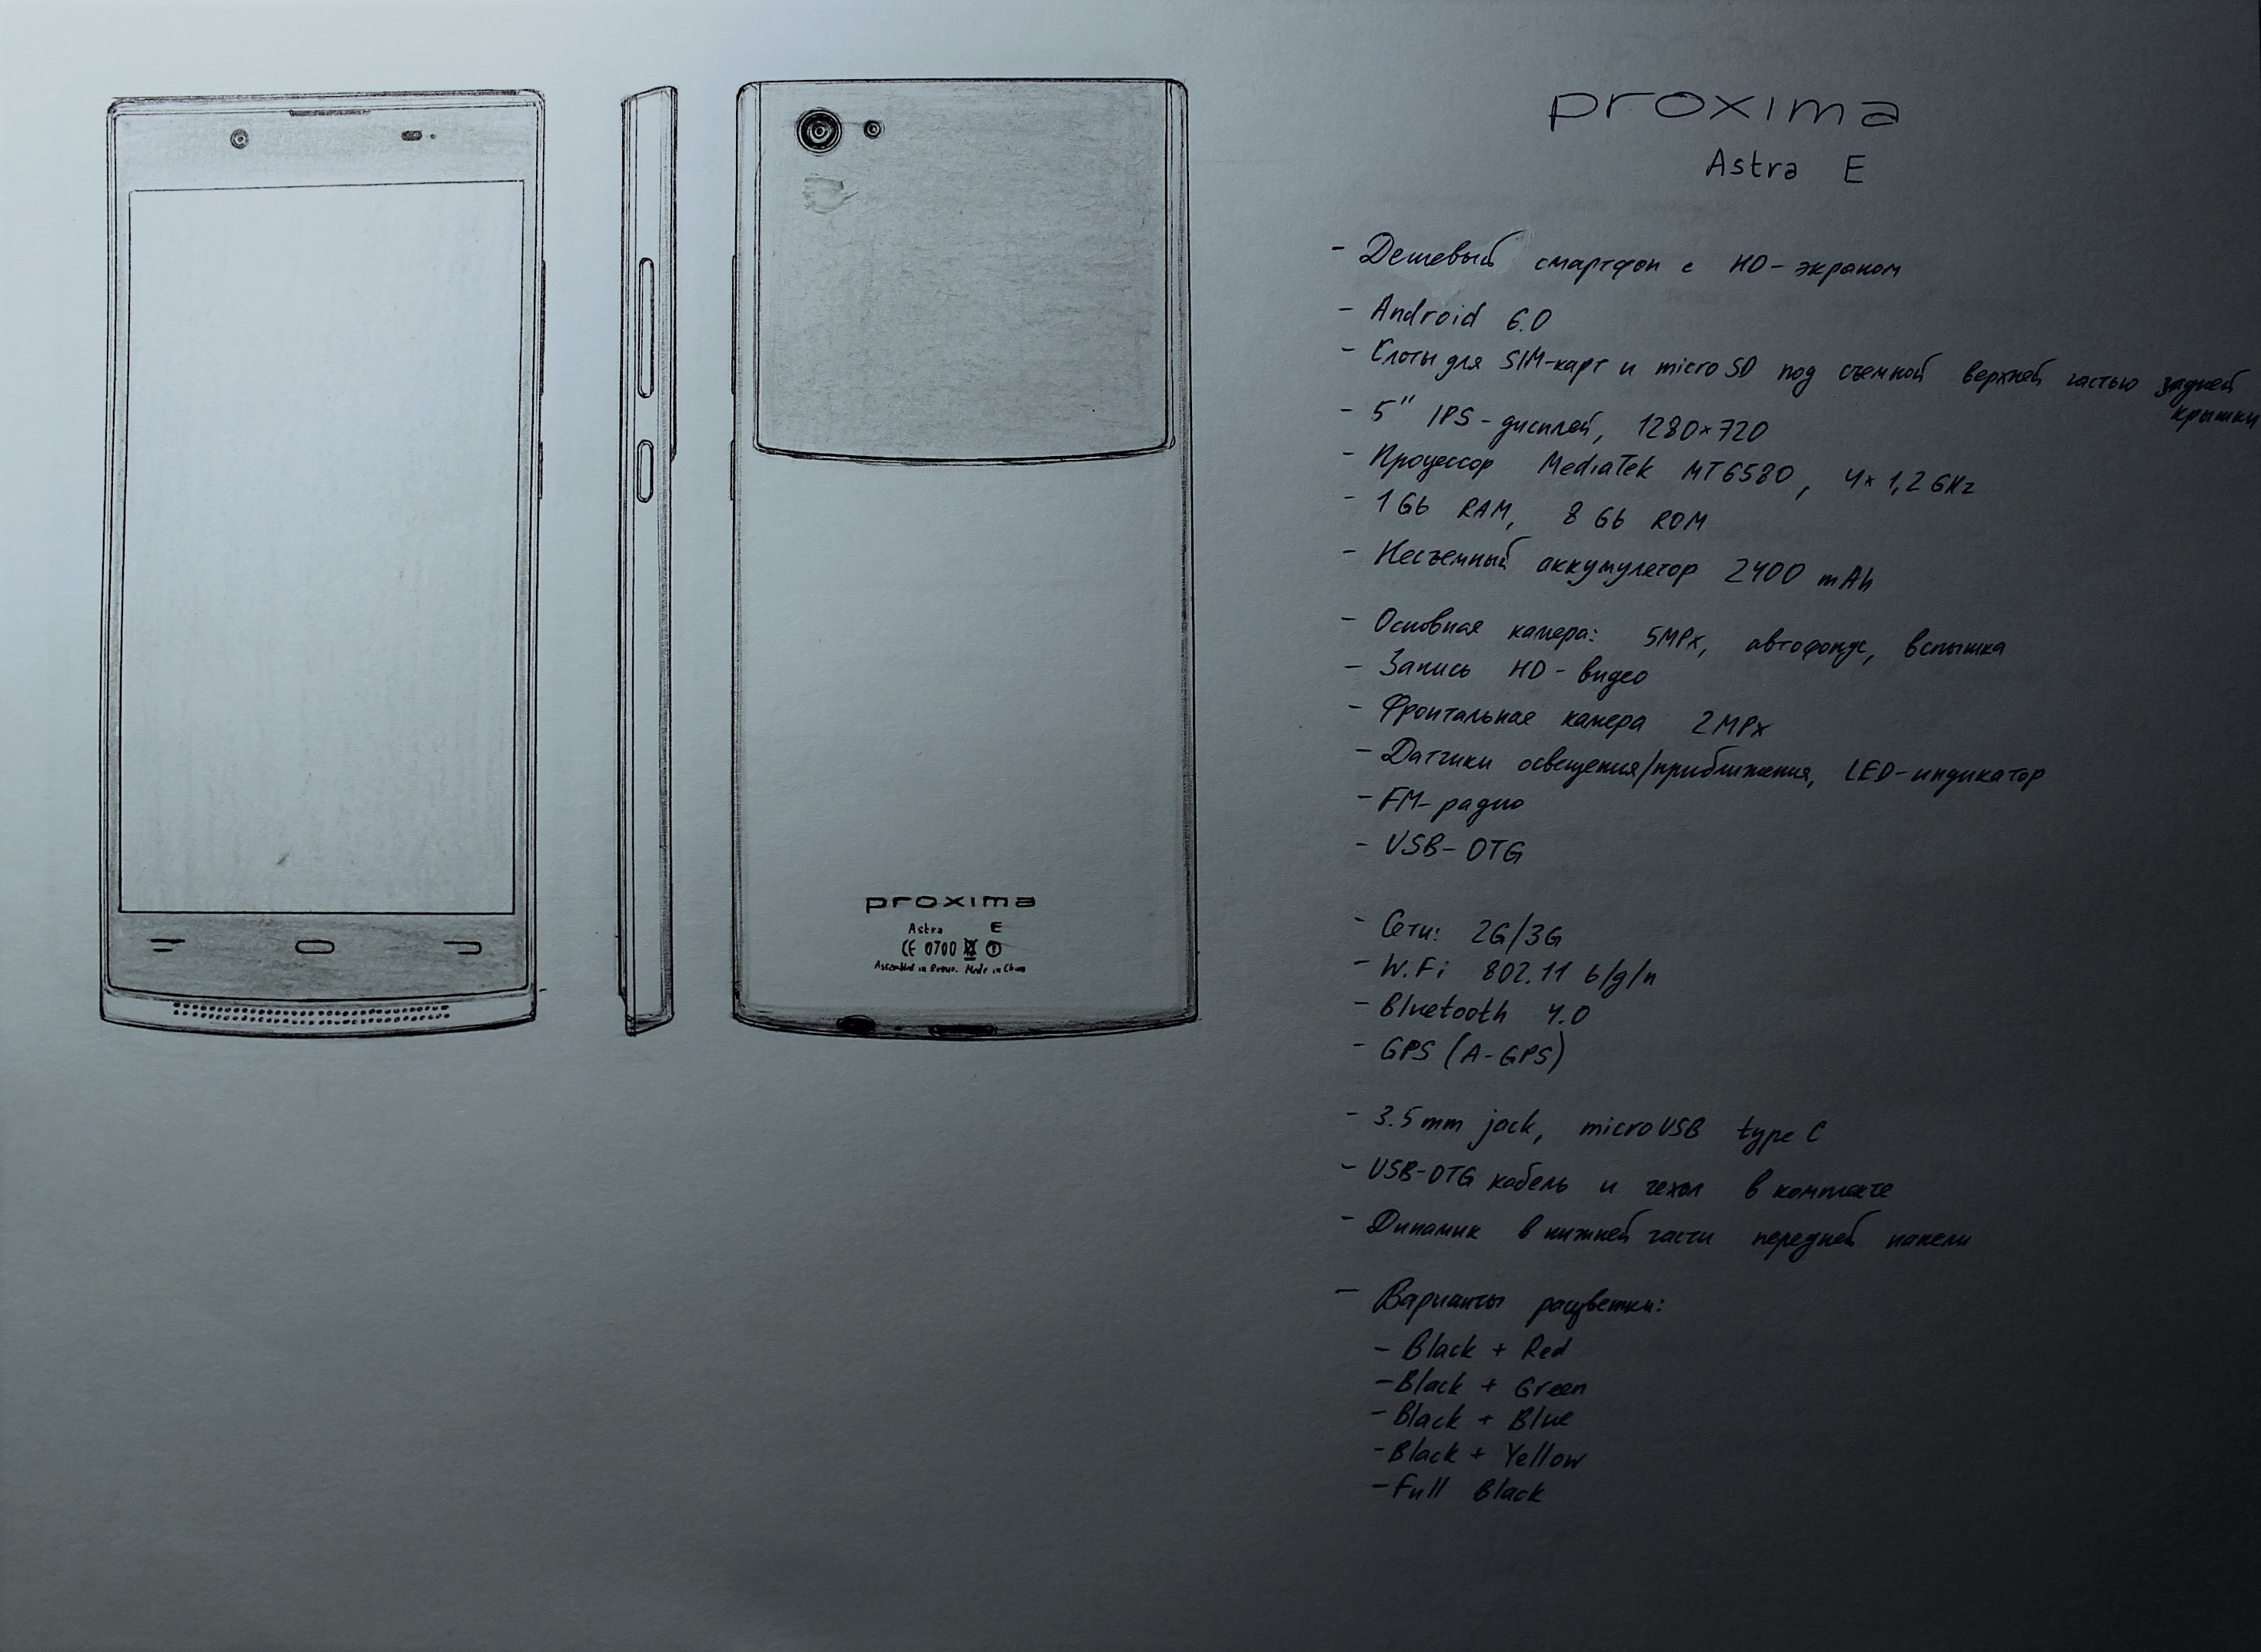 proxima
Astra E
CE 0700
Assembled in Made in China
proxima
Astra E
- Дешевый смартфон с HD-экраном
- Android 6.0
- Слоты для SIM-карт и microSD под съемной верхней частью задней
крышки
- 5" IPS-дисплей, 1280×720
- Процессор MediaTek MT6580, 4×1,2GHz
- 1 Gb RAM, 8 Gb ROM
- Несъемный аккумулятор 2400 mAh
- Основная камера: 5MPx, автофокус, вспышка
- Запись HD-видео
- Фронтальная камера 2MPx
- Датчики освещения/приближения, LED-индикатор
- FM-радио
- USB-OTG
- Сети: 2G/3G
- Wi-Fi 802.11 b/g/n
- Bluetooth 4.0
- GPS (A-GPS)
- 3.5mm jack, microUSB type C
- USB-OTG кабель и чехол в комплекте
- Динамик в нижней части передней панели
- Варианты расцветки:
- Black + Red
- Black + Green
- Black + Blue
- Black + Yellow
- Full Black